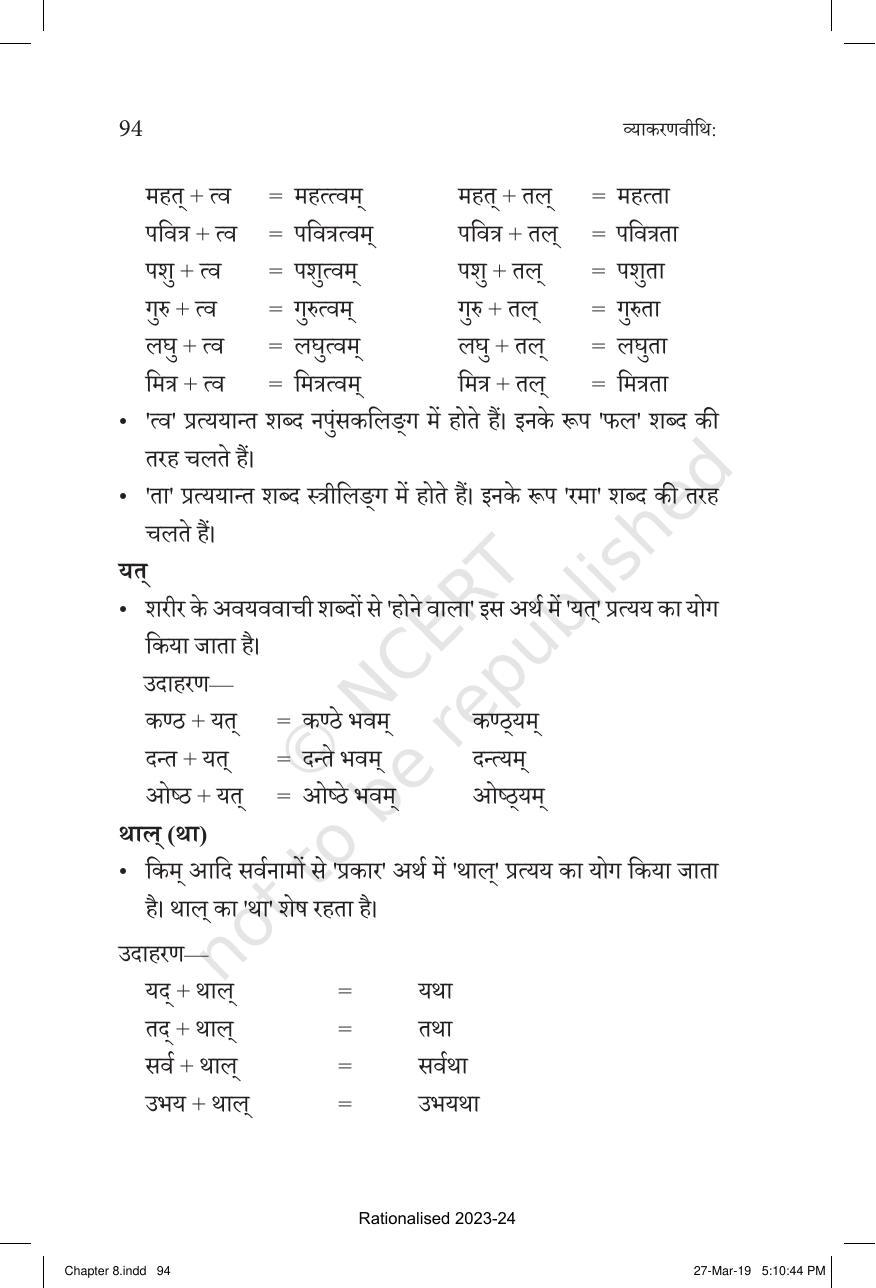 94 व्याकरणवीथि:
महत् + त्व = महत्त्वम् महत् + तल् = महत्ता
पवित्र + त्व = पवित्रत्वम् पवित्र + तल् = पवित्रता
पशु + त्व = पशुत्वम् पशु + तल् = पशुता
गुरु + त्व = गुरुत्वम् गुरु + तल् = गुरुता
लघु + त्व = लघुत्वम् लघु + तल् = लघुता
मित्र + त्व = मित्रत्वम् मित्र + तल् = मित्रता
• 'त्व' प्रत्ययान्त शब्द नपुंसकलिङ्ग में होते हैं। इनके रूप 'फल' शब्द की
तरह चलते हैं।
• 'ता' प्रत्ययान्त शब्द स्त्रीलिङ्ग में होते हैं। इनके रूप 'रमा' शब्द की तरह
चलते हैं।
यत्
• शरीर के अवयववाची शब्दों से 'होने वाला' इस अर्थ में 'यत्' प्रत्यय का योग
किया जाता है।
उदाहरण—
कण्ठ + यत् = कण्ठे भवम् कण्ठ्यम्
दन्त + यत् = दन्ते भवम् दन्त्यम्
ओष्ठ + यत् = ओष्ठे भवम् ओष्ठ्यम्
थाल् (था)
• किम् आदि सर्वनामों से 'प्रकार' अर्थ में 'थाल्' प्रत्यय का योग किया जाता
है। थाल् का 'था' शेष रहता है।
उदाहरण—
यद् + थाल् = यथा
तद् + थाल् = तथा
सर्व + थाल् = सर्वथा
उभय + थाल् = उभयथा
© NCERT
not to be republished
Rationalised 2023-24
Chapter 8.indd 94 27-Mar-19 5:10:44 PM